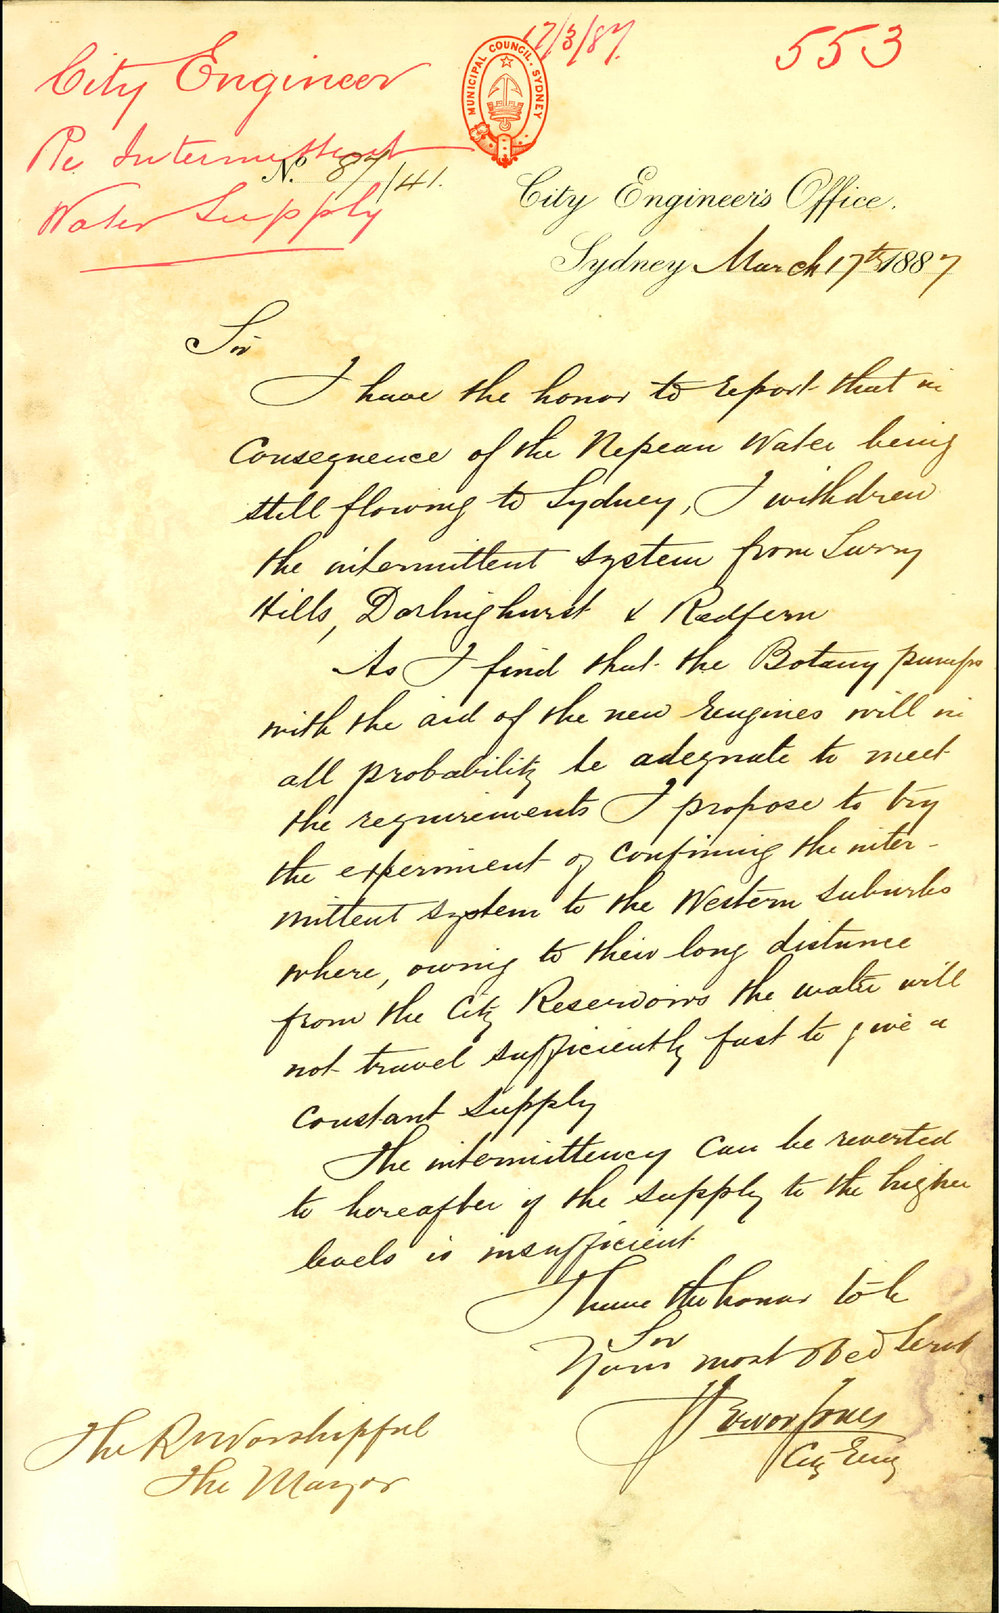 17/3/87.
553
City Engineer
Re Intermittent
Water Supply
MUNICIPAL COUNCIL. SYDNEY
No. 87/141.
City Engineer's Office.
Sydney March 17th 1887
Sir
I have the honor to report that in
consequence of the Nepean Water being
still flowing to Sydney, I withdrew
the intermittent system from Surry
Hills, Darlinghurst & Redfern
As I find that the Botany pumps
with the aid of the new Engines will in
all probability be adequate to meet
the requirements I propose to try
the experiment of confining the inter-
mittent system to the Western suburbs
where, owing to their long distance
from the City Reservoirs the water will
not travel sufficiently fast to give a
constant supply
The intermittency can be reverted
to hereafter if the supply to the higher
levels is insufficient
I have the honor to be
Sir
Yours most obed Servt
Trevor Jones
City Eng
The Rt Worshipful
The Mayor